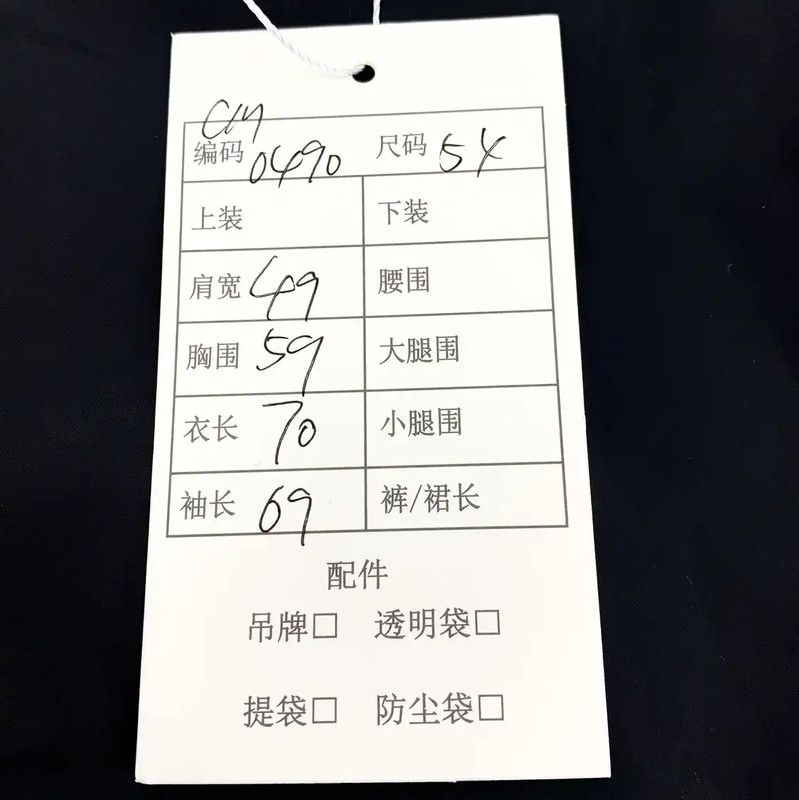 编码 0490 尺码 54
上装 下装
肩宽 49 腰围
胸围 59 大腿围
衣长 70 小腿围
袖长 69 裤/裙长
配件
吊牌□ 透明袋□
提袋□ 防尘袋□